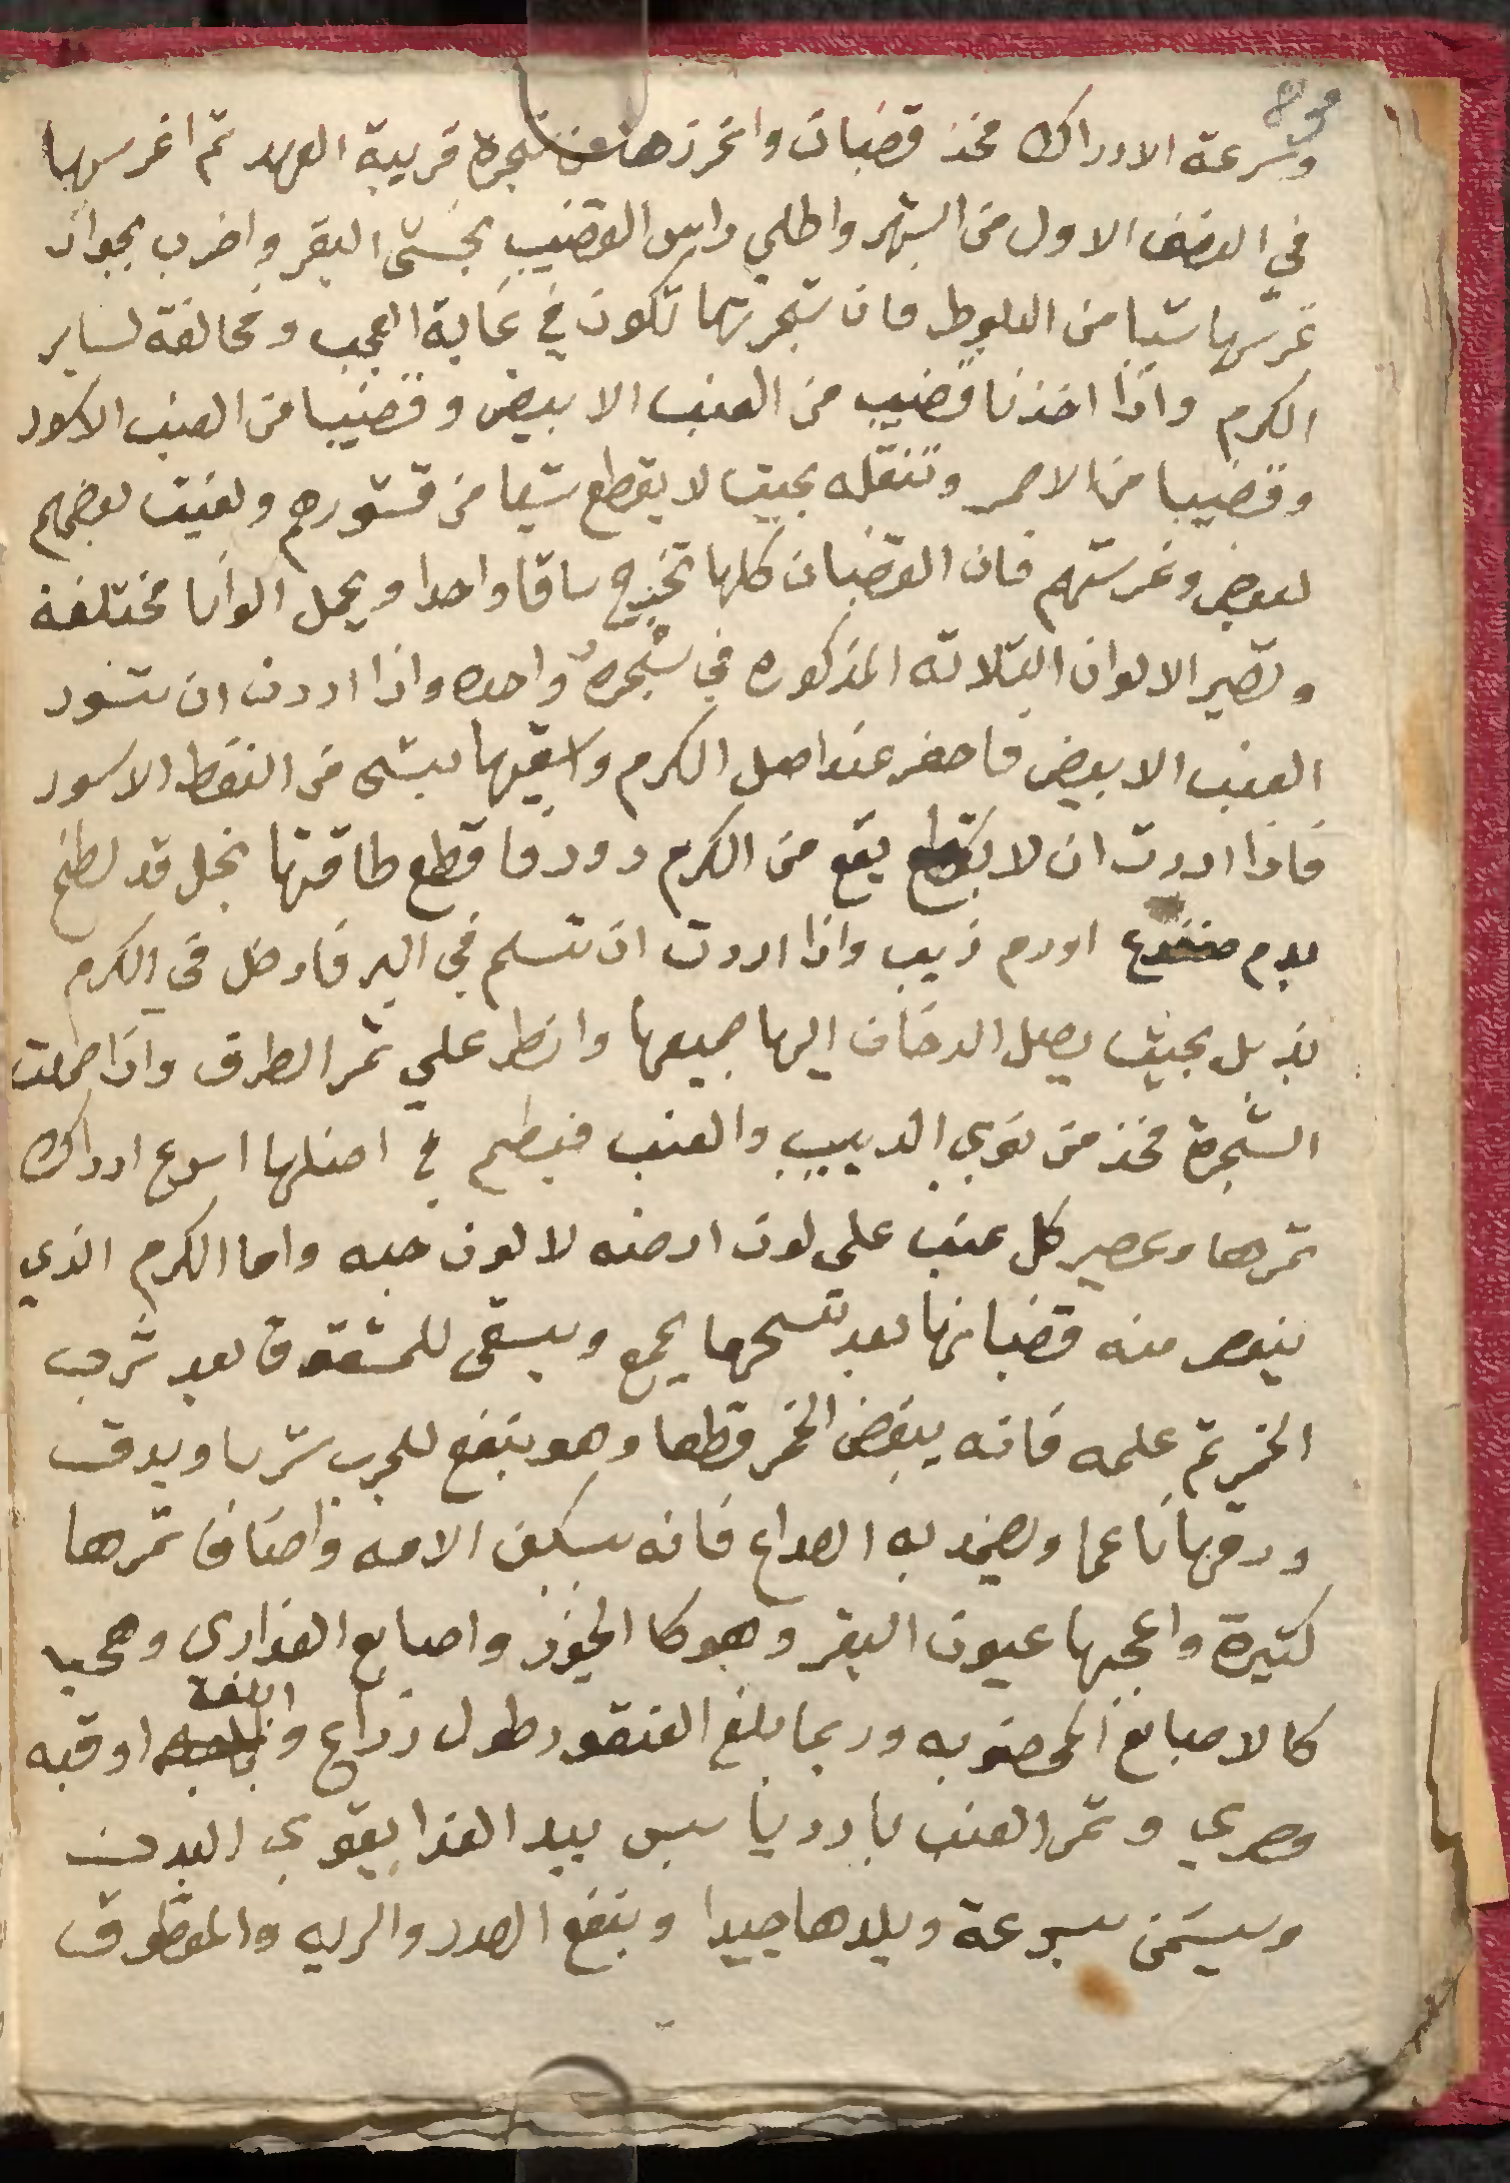 وسرعة الادراك فخذ قضبان واخرزها من شجرة قريبة العهد ثم اغرسها
في النصف الاول من الشهر واطلي راس القضيب بخشى البقر واضرب بجوار
غرسها شيا من البلوط فان شجرتها تكون في غاية العجب ومخالفة لساير
الكرم واذا اخذنا قضيب من العنب الابيض وقضيبا من العنب الاسود
وقضيبا من الاحمر وتنقله بحيث لا يقطع شيا من قشورهم ولفيت بعضهم
لبعض وغرستهم فان القضبان كلها تخرج ساقا واحدا ويحمل الوانا مختلفة
وتصير الالوان الثلاثه المذكوره في شجره واحده واذا اردت ان تسود
العنب الابيض فاحفر عند اصل الكرم واسقيها بشى من النفط الاسود
فاذا اردت ان لا يقع من الكرم دود فاقطع طاقتها بخل قد لطخ
بدم ضفدع اودم ذيب واذا اردت ان تسلم في البر فادخل في الكرم
بذبل بحيث يصل الدخان اليها جميعها وانظر علي ثمر الطرف واذا حملت
الشجرة فخذ من نوي الدبيب والعنب فيطم في اصلها اسرع ادراك
ثمرها وعصير كل عنب على لون ارضه لا لون حبه واما الكرم الذي
ينعصر منه قضبانها بعد تسحها يجمع ويسقى للمشقة وق بعد شرب
الخمر ثم علمه فانه يبغض الخمر قطعا وهو ينفع للجرب شربا ويدق
ورقها ناعما ويضمد به الصداع فانه يسكن الامه واصناف ثمرها
كثيرة واعجبها عيون البقر وهو كالجوز واصابع العذاري وهى حبا
كالاصابع المخضوبه وربما بلغ العنقود طول ذراع والفة اوقيه
مصري وثمر العنب بارد يابس بيد الغذا يقوي البدن
ويسمن بسرعة ويلدها جيدا وينفع الصدر والريه والمقطوف